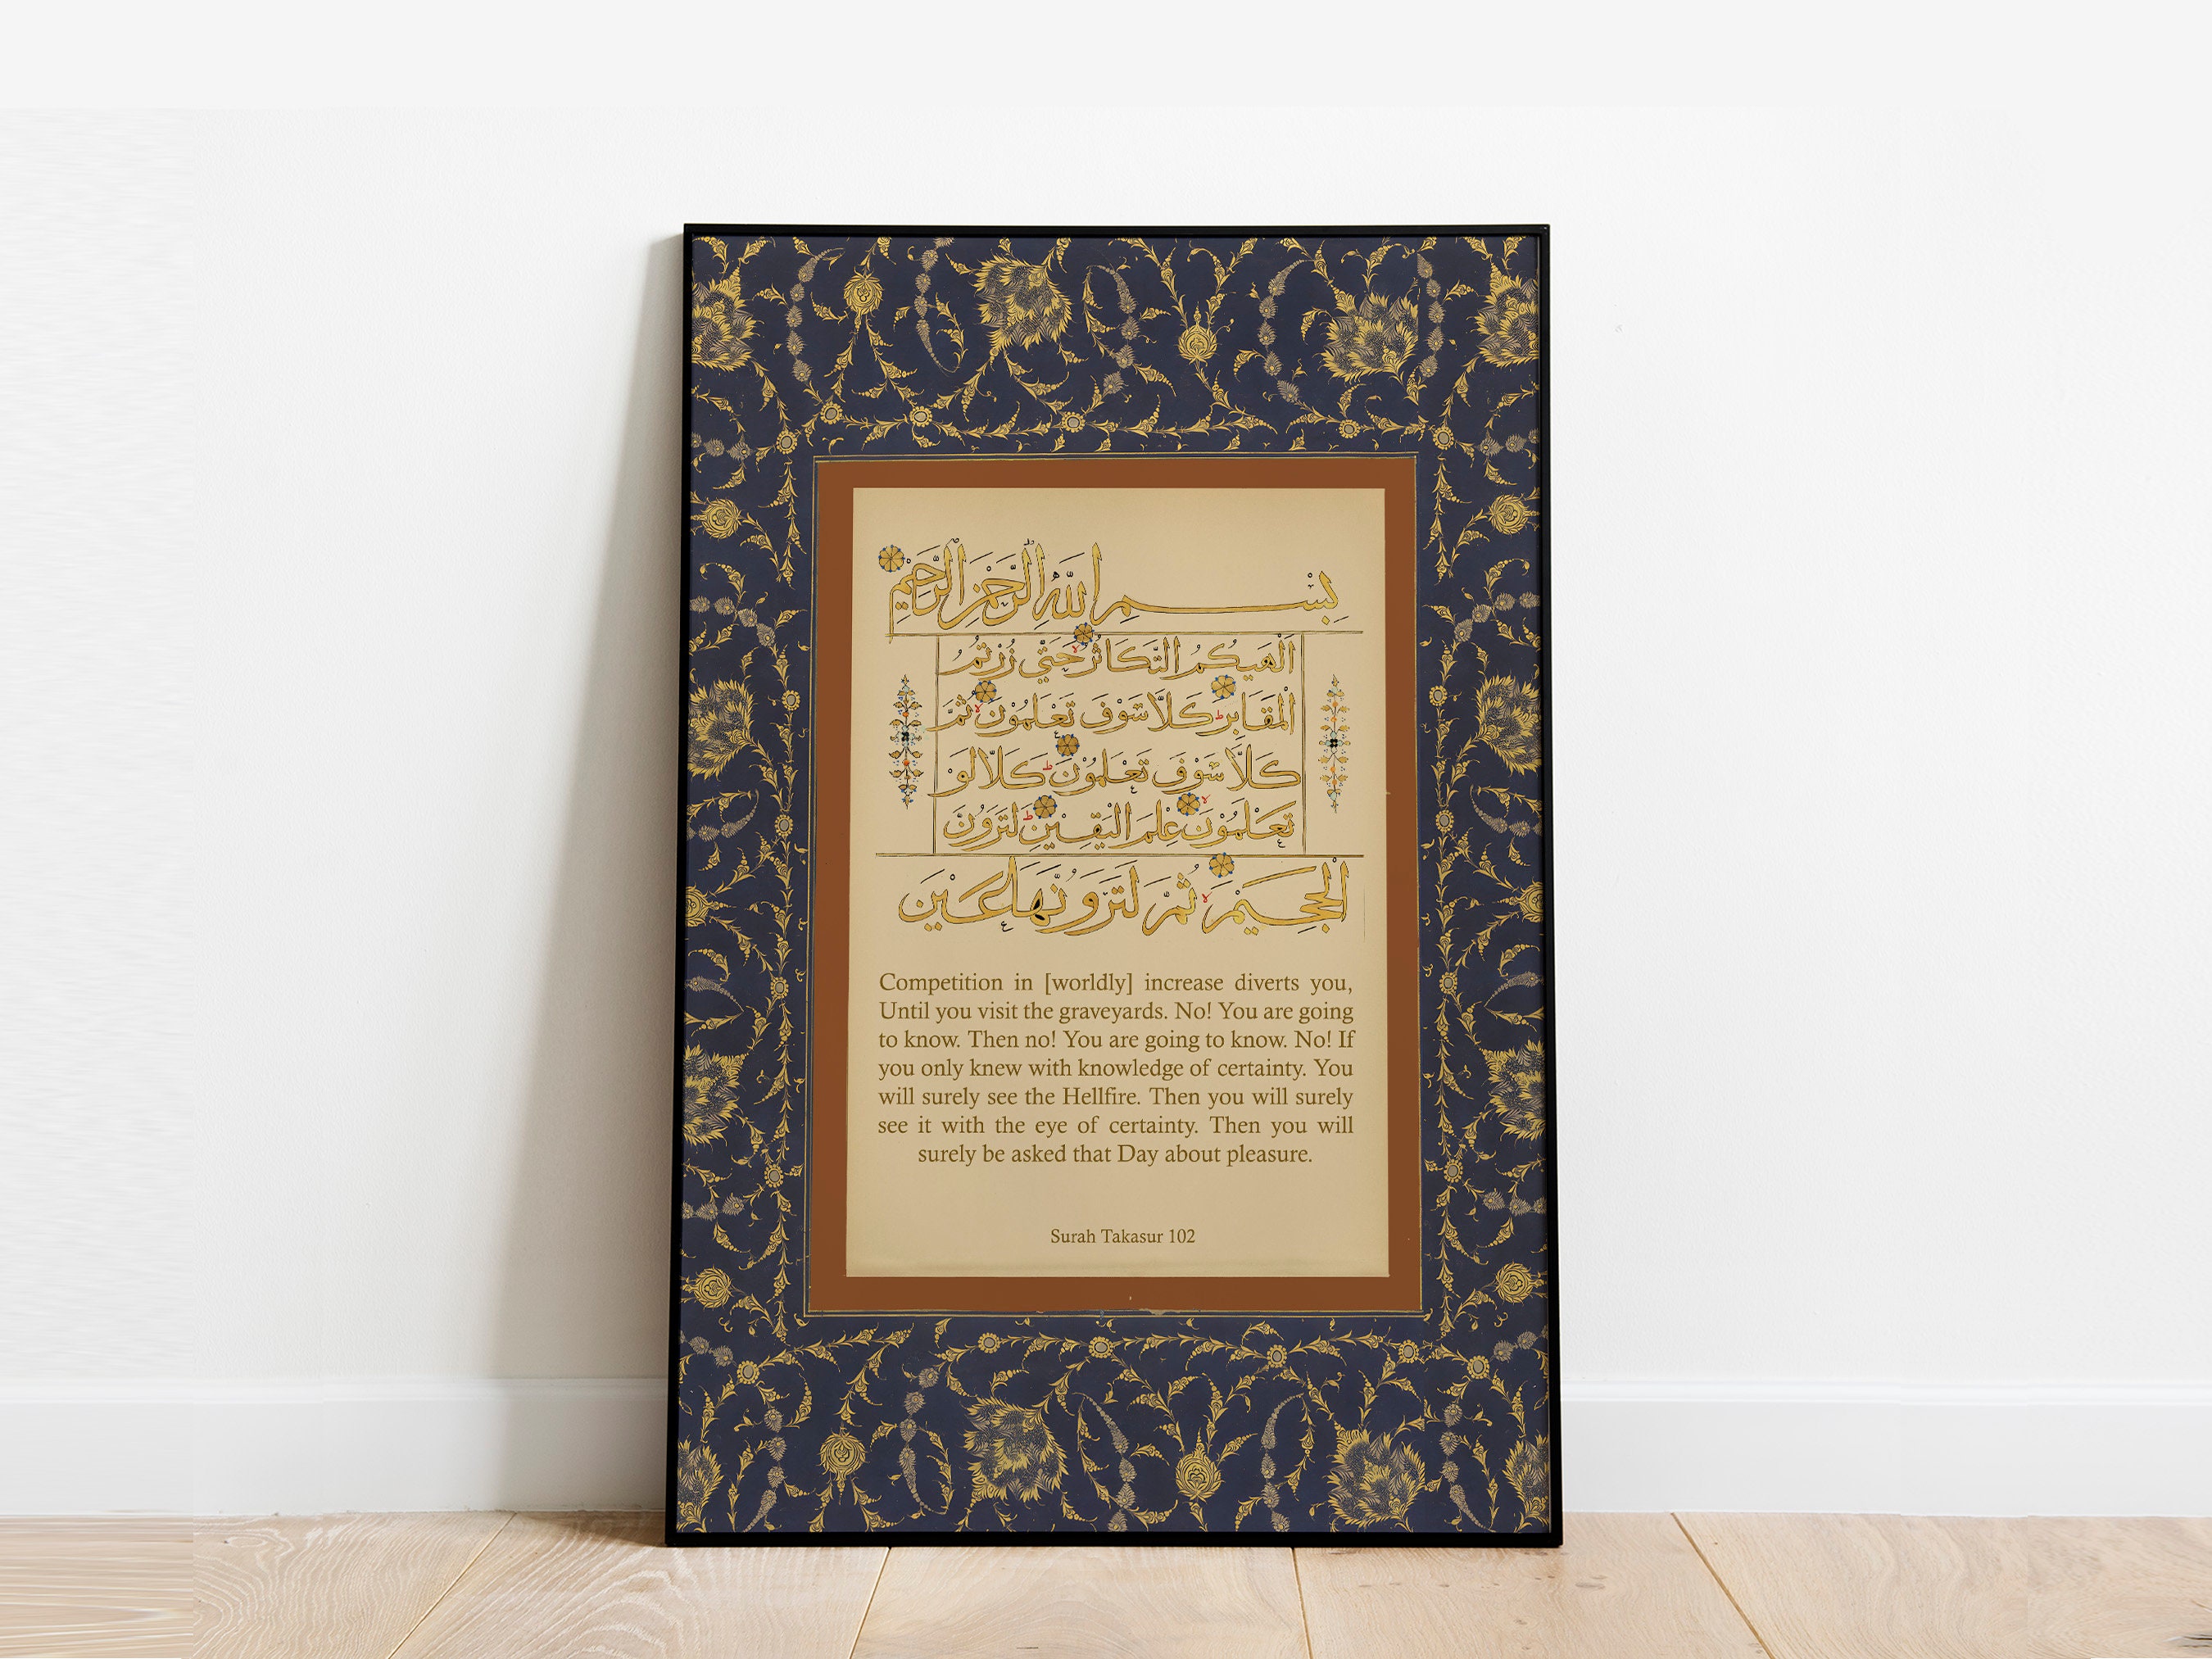 بِسْمِ اللهِ الرَّحْمٰنِ الرَّحِيْمِ
اَلْهٰيكُمُ التَّكَاثُرُ حَتّٰي زُرْتُمُ
الْمَقَابِرَ ط كَلَّا سَوْفَ تَعْلَمُوْنَ ثُمَّ
كَلَّا سَوْفَ تَعْلَمُوْنَ ط كَلَّا لَوْ
تَعْلَمُوْنَ عِلْمَ الْيَقِيْنِ ط لَتَرَوُنَّ
الْجَحِيْمَ ثُمَّ لَتَرَوُنَّهَا عَيْنَ
Competition in [worldly] increase diverts you,
Until you visit the graveyards. No! You are going
to know. Then no! You are going to know. No! If
you only knew with knowledge of certainty. You
will surely see the Hellfire. Then you will surely
see it with the eye of certainty. Then you will
surely be asked that Day about pleasure.
Surah Takasur 102